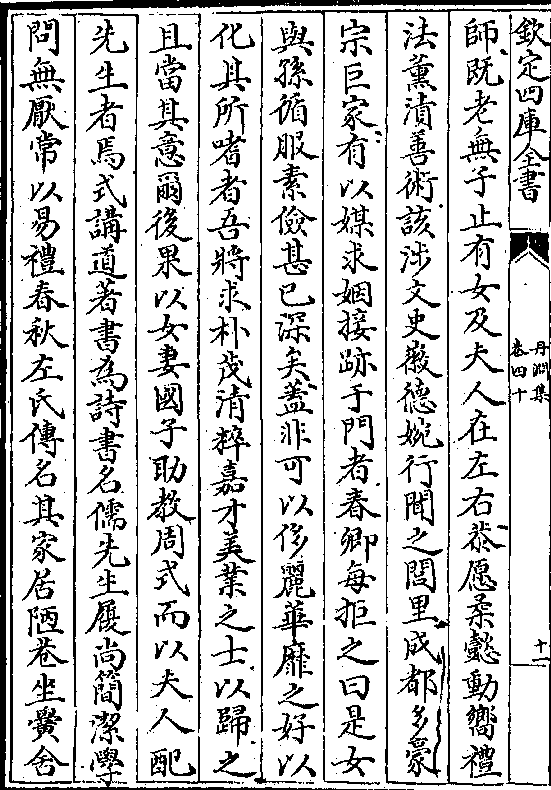 欽定四庫全書
丹淵集
卷四十
十一
師既老無子止有女及夫人在左右恭愿柔懿動嚮禮
法薰漬善術該涉文史徽德婉行聞之閭里成都多豪
宗巨家有以媒求姻接跡于門者春卿每拒之曰是女
與孫循服素儉甚已深矣蓋非可以侈麗華靡之好以
化其所嗜者吾將求朴茂清粹嘉才美業之士以歸之
且當其意爾後果以女妻國子助教周式而以夫人配
先生者焉式講道著書為詩書名儒先生履尚簡潔學
問無厭常以易禮春秋左氏傳名其家居陋巷坐黌舍